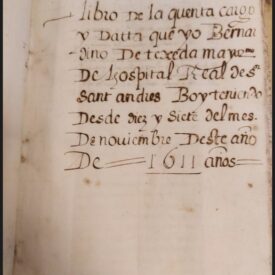 libro De la quenta cargo
y Datta que yo Bernar
dino De texeda mayᵐᵒ
De hospital Real de sʳ
sant andres Boy teniendo
Desde diez y Siete del mes
De noviembre Deste año
De 1611 años